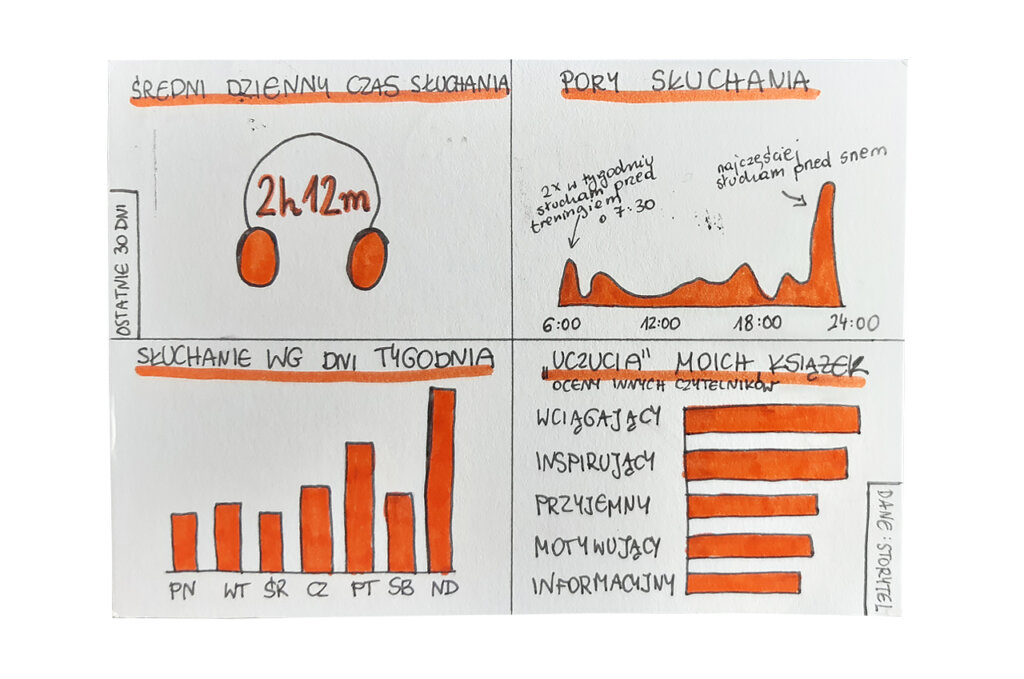 ŚREDNI DZIENNY CZAS SŁUCHANIA
2h12m
OSTATNIE 30 DNI
PORY SŁUCHANIA
2x w tygodniu
słucham przed
treningiem
o 7:30
najczęściej
słucham przed snem
6:00 12:00 18:00 24:00
SŁUCHANIE WG DNI TYGODNIA
PN WT ŚR CZ PT SB ND
„UCZUCIA" MOICH KSIĄŻEK
OCENY INNYCH CZYTELNIKÓW
WCIĄGAJĄCY
INSPIRUJĄCY
PRZYJEMNY
MOTYWUJĄCY
INFORMACYJNY
DANE: STORYTEL